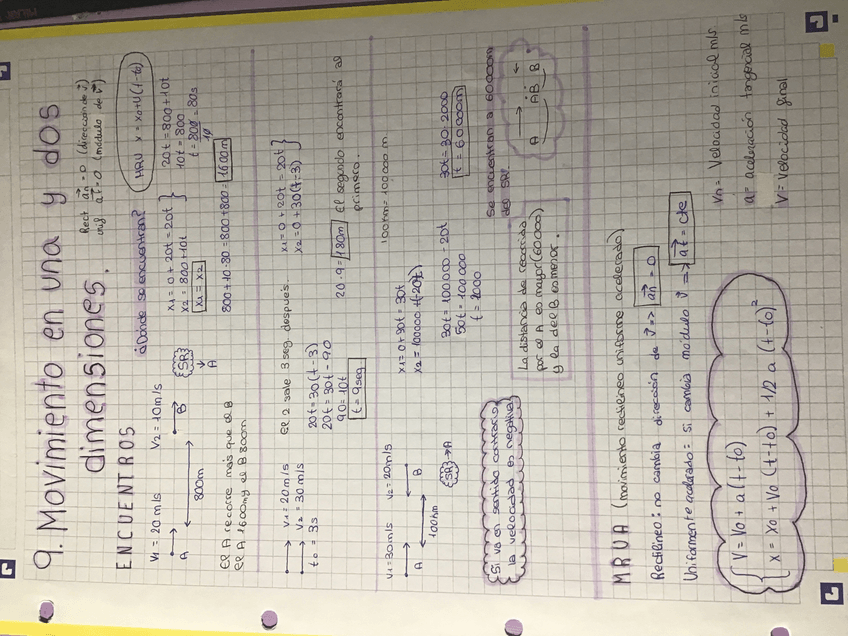 9. Movimiento en una y dos
dimensiones.
Rect an = 0 (dirección de v)
unif at = 0 (módulo de v)
ENCUENTROS
¿Dónde se encuentran?
MRU x = x0 + v (t - t0)
V1 = 20 m/s V2 = 10 m/s
A B
800m
{SR}
A
x1 = 0 + 20t = 20t }
x2 = 800 + 10t
x1 = x2
20t = 800 + 10t
10t = 800
t = 800 = 80s
10
800 + 10·80 = 800 + 800 = 1600m
El A recorre más que el B
El A 1600m y el B 800m
V1 = 20 m/s
V2 = 30 m/s
t0 = 3s
El 2 sale 3 seg después.
20t = 30 (t - 3)
20t = 30t - 90
90 = 10t
t = 9 seg
x1 = 0 + 20t = 20t }
x2 = 0 + 30 (t - 3)
20 · 9 = 180m El segundo encontrará al
primero.
V1 = 30 m/s V2 = 20 m/s
A B
100km
{SR} → A
100km = 100000 m
x1 = 0 + 30t = 30t
x2 = 100000 + (-20t)
30t = 100000 - 20t
50t = 100000
t = 2000
30t = 30·2000
t = 60000m
Si va en sentido contrario
la velocidad es negativa
La distancia de recorrida
por el A es mayor (60000)
y la del B es menor.
Se encuentran a 60000m
del SR.
A AB B
MRUA (movimiento rectilíneo uniforme acelerado)
Rectilíneo: no cambia dirección de v => an = 0
Uniformemente acelerado: si cambia módulo v => at = cte
V = V0 + a (t - t0)
x = x0 + V0 (t - t0) + 1/2 a (t - t0)²
Vn = Velocidad inicial m/s
a = aceleración tangencial m/s
V = Velocidad final